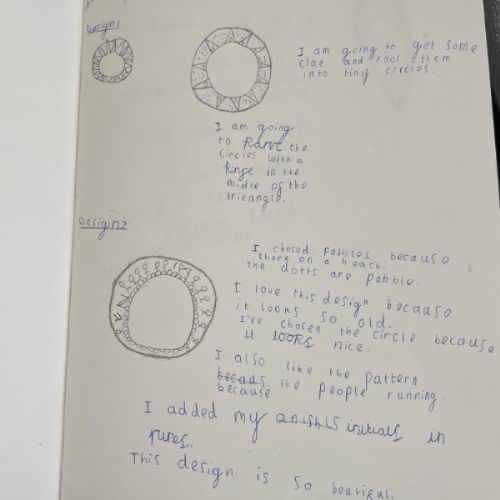 Design 1
I am going to get some
clae and rool them
into tiny circles.
I am going
to Karve the
circles with a
Ringe in the
midle of the
trieangle.
Design 2
I chosed pebbles because
there on a beach.
the dotts are pebble.
I love this design because
it looks so old.
I've chosen the circle because
it looks nice.
I also like the pattern
becaus the people running.
because
I added my initials in
runes.
This design is so beutiful.